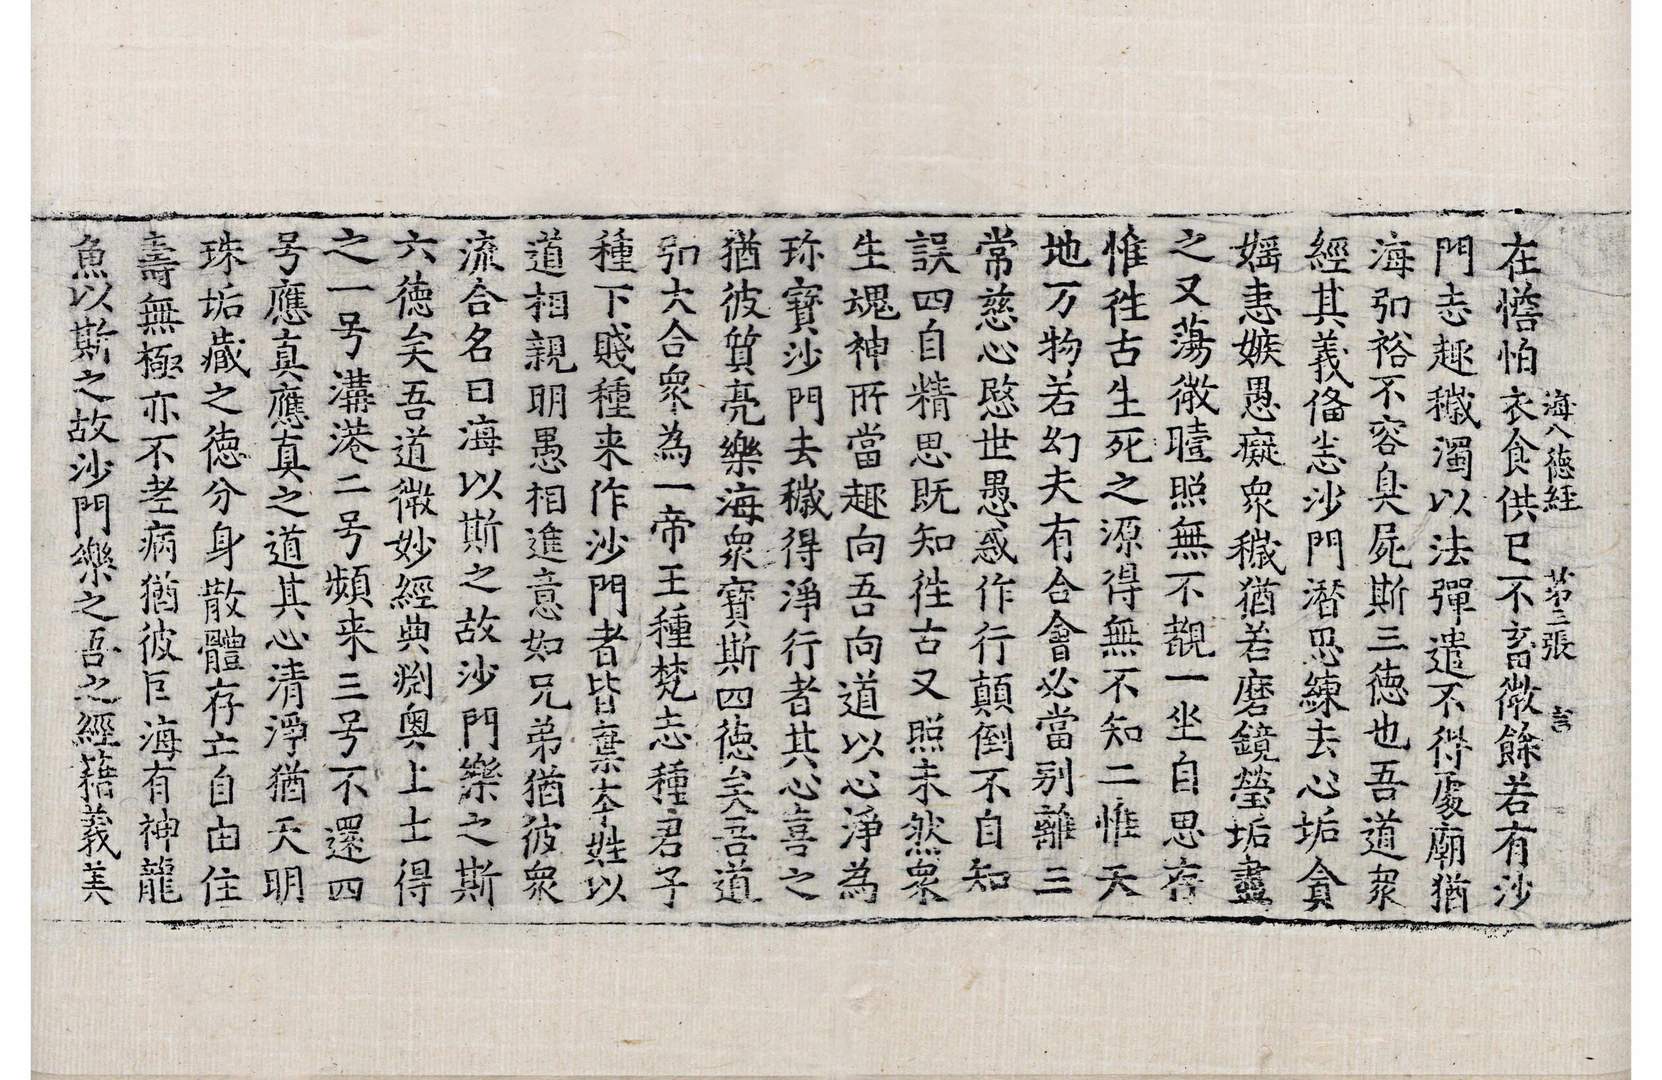 海八德經 第三張 言
在憺怕衣食供已不畜微餘若有沙
門志趣穢濁以法彈遣不得處廟猶
海弘裕不容臭屍斯三德也吾道衆
經其義俻悉沙門潜思練去心垢貪
婬恚嫉愚癡衆穢猶若磨鏡瑩垢盡
之又蕩微曀照無不覩一坐自思存
惟徃古生死之源得無不知二惟天
地万物若幻夫有合會必當别離三
常慈心愍世愚惑作行顛倒不自知
誤四自精思既知徃古又照未然衆
生魂神所當趣向吾向道以心淨為
珎寶沙門去穢得淨行者其心喜之
猶彼質亮樂海衆寶斯四德矣吾道
弘大合衆為一帝王種梵志種君子
種下賤種来作沙門者皆棄夲姓以
道相親明愚相進意如兄弟猶彼衆
流合名曰海以斯之故沙門樂之斯
六德矣吾道微妙經典渕奥上士得
之一号溝港二号頻来三号不還四
号應真應真之道其心清淨猶天明
珠垢藏之德分身散體存亡自由住
壽無極亦不老病猶彼巨海有神龍
魚以斯之故沙門樂之吾之經籍義美